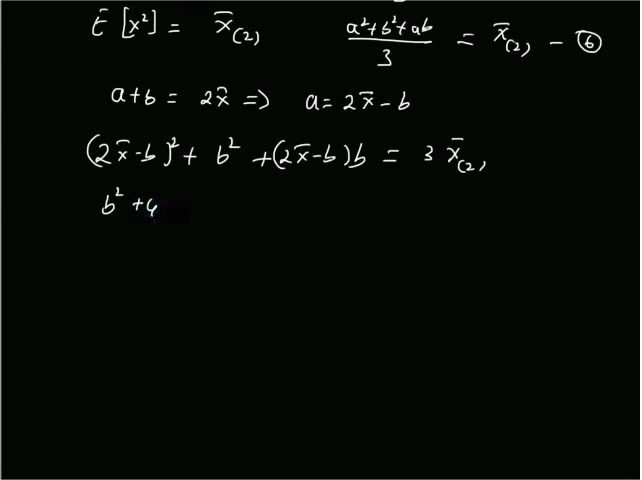 E [x²] = x̄₍₂₎ (a²+b²+ab)/3 = x̄₍₂₎ - ⑥
a+b = 2x̄ => a = 2x̄ - b
(2x̄-b)² + b² + (2x̄-b)b = 3 x̄₍₂₎
b² + 4